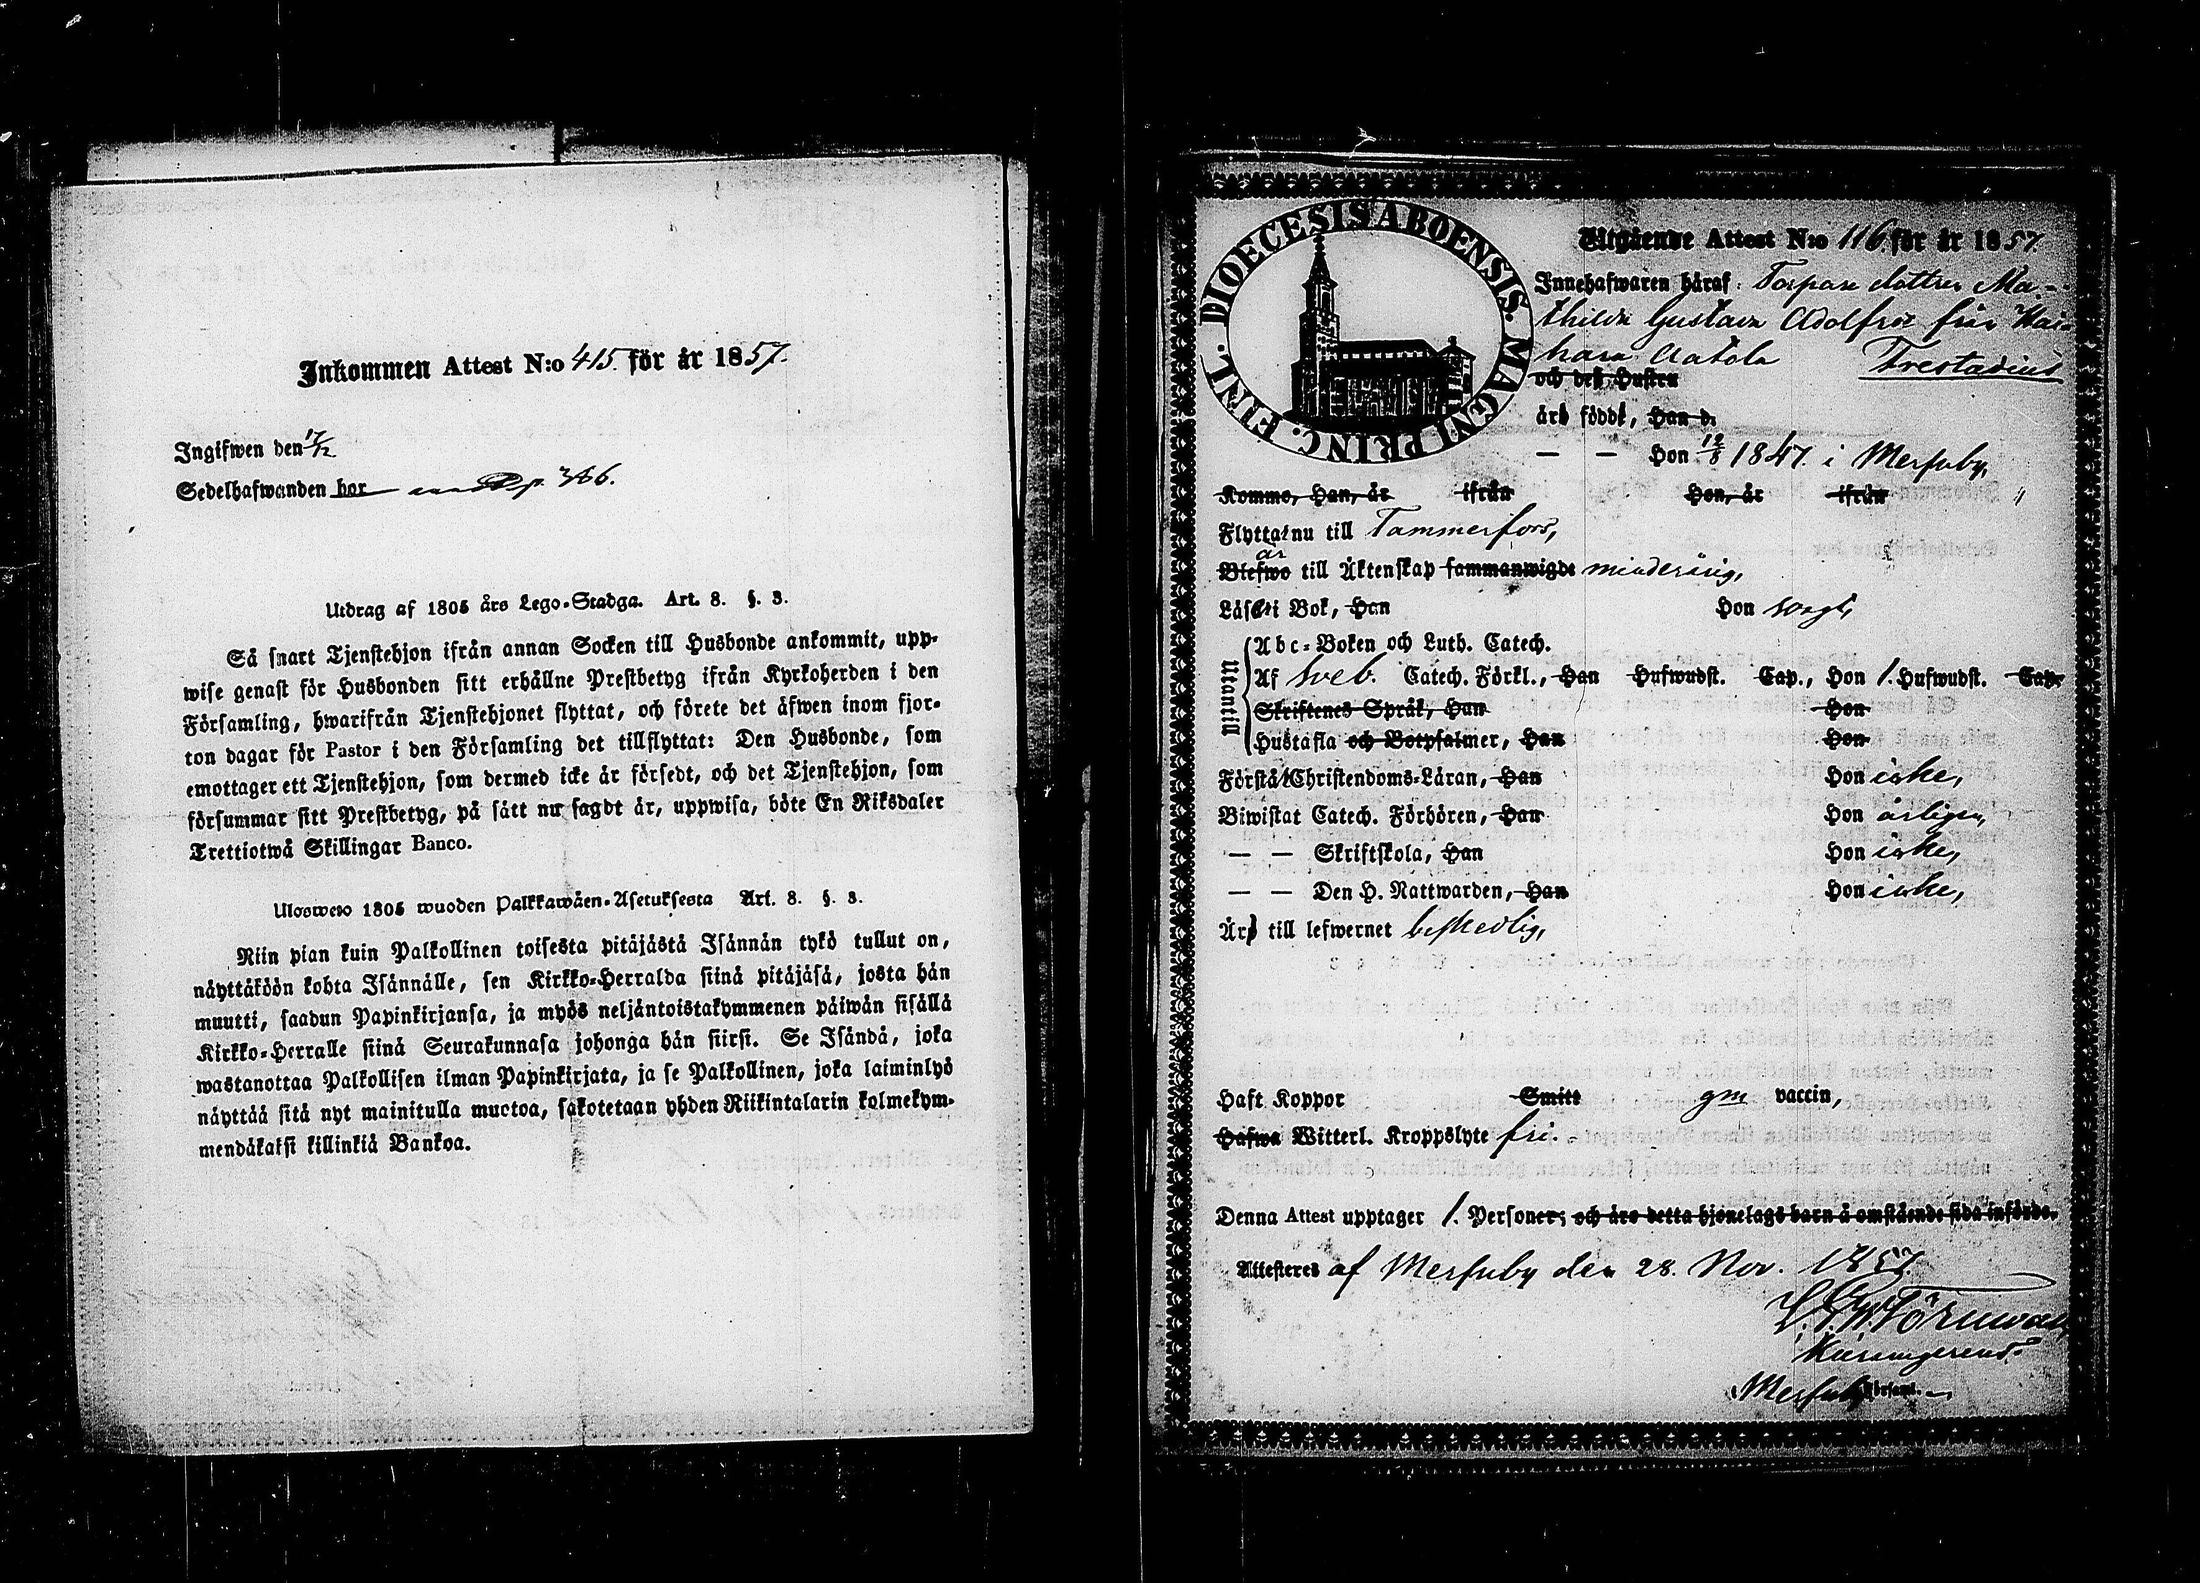 Inkommen Attest N:o 415. för år 1857.
Ingifwen den 17/12
Sedelhafwanden bor p. 366.
Utdrag af 1805 års Lego-Stadga. Art. 8. §. 3.
Så snart Tjenstehjon ifrån annan Socken till Husbonde ankommit, upp-
wise genast för Husbonden sitt erhållne Prestbetyg ifrån Kyrkoherden i den
Församling, hwarifrån Tjenstehjonet flyttat, och förete det äfwen inom fjor-
ton dagar för Pastor i den Församling det tillflyttat: Den Husbonde, som
emottager ett Tjenstehjon, som dermed icke är försedt, och det Tjenstehjon, som
försummar sitt Prestbetyg, på sätt nu sagdt är, uppwisa, böte En Riksdaler
Trettiotwå Skillingar Banco.
Ulosweto 1805 wuoden Palkkawäen-Asetuksesta Art. 8. §. 3.
Niin pian kuin Palkollinen toisesta pitäjästä Isännän tykö tullut on,
näyttäköön kohta Isännälle, sen Kirkko-Herralda siinä pitäjäsä, josta hän
muutti, saadun Papinkirjansa, ja myös neljäntoistakymmenen päiwän sisällä
Kirkko-Herralle siinä Seurakunnasa johonga hän siirsi. Se Isändä, joka
wastanottaa Palkollisen ilman Papinkirjata, ja se Palkollinen, joka laiminlyö
näyttää sitä nyt mainitulla muotoa, sakotetaan yhden Riikintalarin kolmekym-
mendäkaksi killinkiä Bankoa.
DIOECESIS ABOENSIS. MAGNI PRINC. FINL.
Utgående Attest N:o 116 för år 1857.
Innehafwaren häraf: Torpare dottren Ma-
thilda Gustava Adolfsdr från
hara Aatola Frestadius
och des Hustru
äro födde, Han d.
— — Hon 12/8 1847. i Messuby,
Komme, Han, år ifrån Hon, år ifrån "
Flytta nu till Tammerfors,
är
Blefwo till Äktenskap sammanwigde minderårig,
Läser i Bok, Han Hon svagt,
Utantill
Abc-Boken och Luth. Catech.
Af Sveb. Catech. Förkl., Han Hufwudst. Cap., Hon 1. Hufwudst. Cap.
Skriftenes Språk, Han Hon
Hustafla och Botpsalmer, Han Hon
Förstå Christendoms-Läran, Han Hon icke,
Biwistat Catech. Förhören, Han Hon årligen,
— — Skriftskola, Han Hon icke,
— — Den H. Nattwarden, Han Hon icke,
Är till lefwernet beskedlig,
Haft Koppor Smitt gm vaccin,
Hafwa Witterl. Kroppslyte fri.
Denna Attest upptager 1. Personer; och äro detta hjonelags barn å omstående sida införde.
Attesteres af Messuby den 28. Nov. 1857.
Törnwall
Messuby Församl.